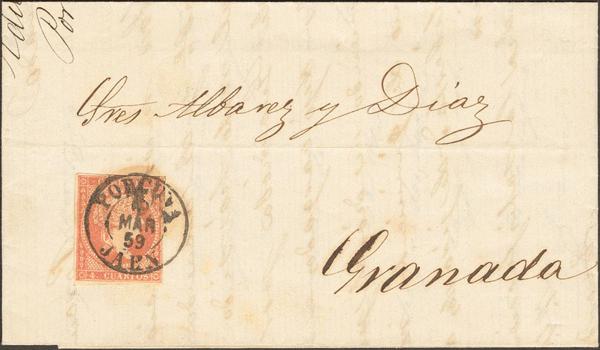 Sres Albarez y Diaz
PORCUNA
MAR
59
JAEN
4 CUARTOS
Granada
Por